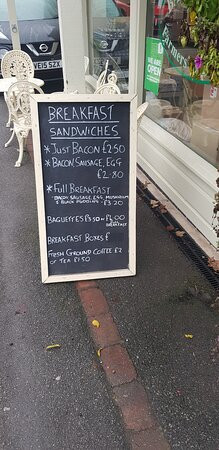 NISSAN
VE15 SZX
Farmers
WE ARE
OPEN
BREAKFAST
SANDWICHES
* JUST BACON £2.50
* BACON, SAUSAGE, EGG
£2.80
* FULL BREAKFAST
BACON, SAUSAGE, EGG, MUSHROOM
& BLACK PUDDING £3.20
BAGUETTES £3.50 OR £4.00
FULL
BREAKFAST
BREAKFAST BOXES £
FRESH GROUND COFFEE £2
OR TEA £1.50